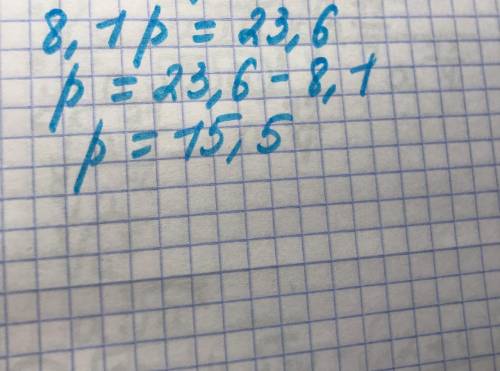 8,1p = 23,6
p = 23,6 - 8,1
p = 15,5